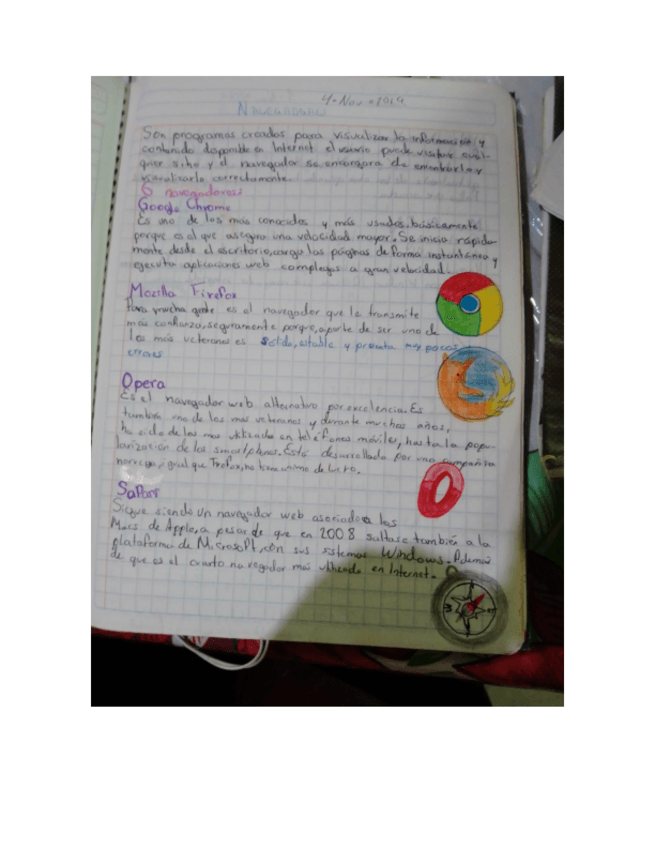 4-Nov-2019
Navegadores
Son programas creados para visualizar la información y
contenido disponible en Internet el usuario puede visitar cual-
quier sitio y el navegador se encargara de encontrarlo y
visualizarlo correctamente.
6 navegadores:
Google Chrome
Es uno de los más conocados y más usados, básicamente
porque es el que asegura una velocidad mayor. Se inicia rápida-
mente desde el escritorio, carga las páginas de forma instantánea y
ejecuta aplicaciones web complejas a gran velocidad.
Mozilla Firefox
Para mucha gente es el navegador que le transmite
más confianza, seguramente porque, aparte de ser uno de
los más veteranos es solido, estable y presenta muy pocos
errores
Opera
Es el navegador web alternativo por excelencia. Es
también uno de los mas veteranos y durante muchos años,
ha sido de los mas utilizados en teléfonos móviles, hasta la popu-
larización de los smartphones. Está desarrollado por una compañia
noruega, igual que Firefox, no tiene
Safari
Sigue siendo un navegador web asociado a los
Macs de Apple, a pesar de que en 2008 saltase también a la
plataforma de Microsoft, con sus sistemas Windows. Además
de que es el cuarto navegador más utilizado en Internet.